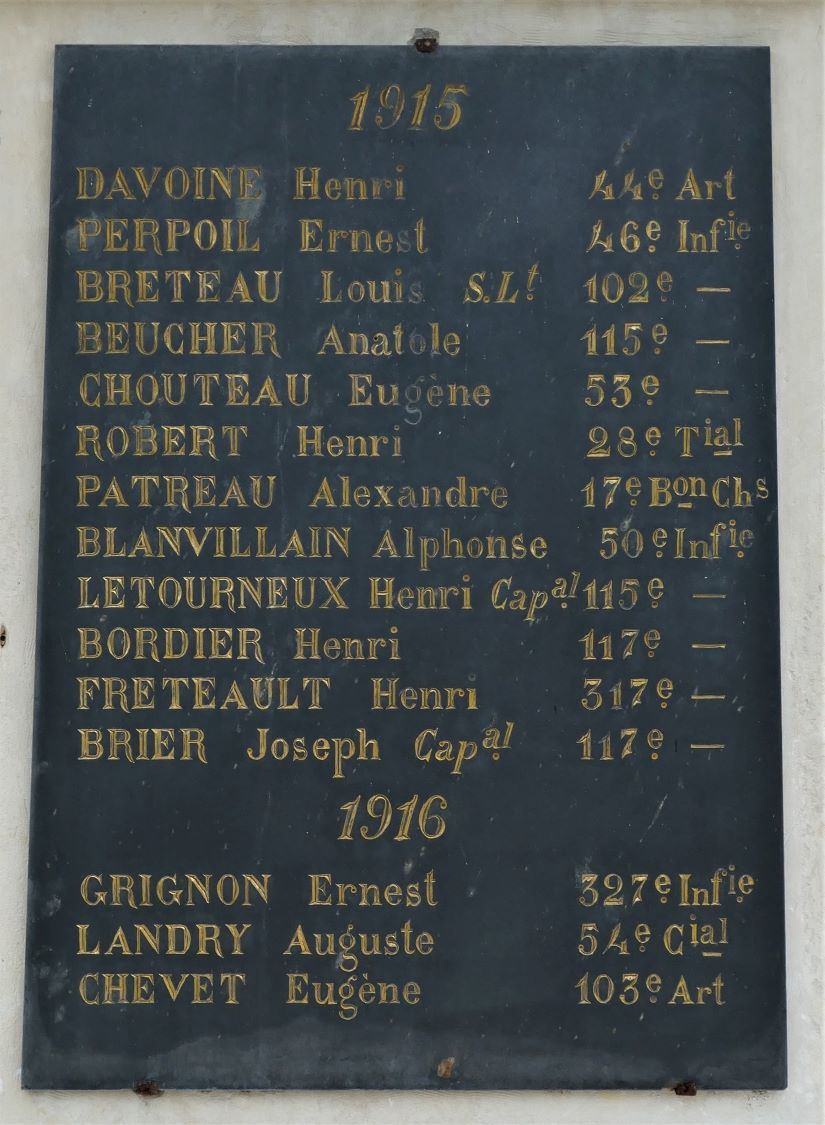 1915
DAVOINE Henri 44e Art
PERPOIL Ernest 46e Infie
BRETEAU Louis S.Lt 102e —
BEUCHER Anatole 115e —
CHOUTEAU Eugène 53e —
ROBERT Henri 28e Tial
PATREAU Alexandre 17e Bon Chs
BLANVILLAIN Alphonse 50e Infie
LETOURNEUX Henri Capal 115e —
BORDIER Henri 117e —
FRETEAULT Henri 317e —
BRIER Joseph Capal 117e —
1916
GRIGNON Ernest 327e Infie
LANDRY Auguste 54e Cial
CHEVET Eugène 103e Art